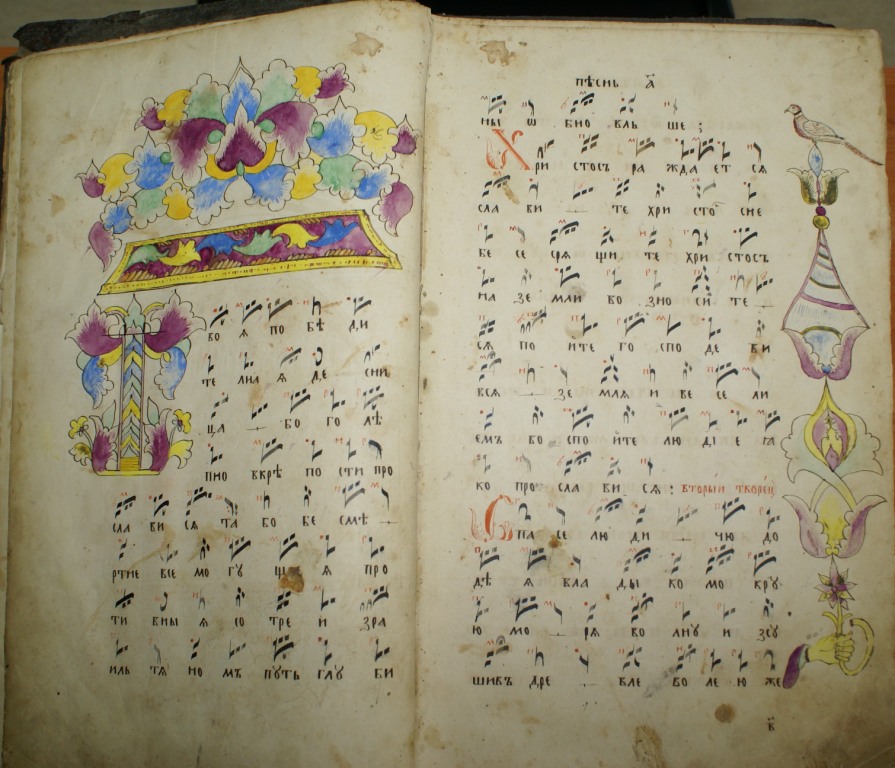 во я по бѣ ди
те лна я де сни
ца — бо го лѣ
пно вкрѣ по сти про
сла ви ся та бо бе смѣ —
ртне все мо гу ща я про
ти вны я со тре и зра
иль тя но мъ путь глу би
пѣснь а҃
ны ѡ бно вль ше ;
Хри стосъ ра жда ет ся
сла ви — те хри сто с не
бе се сря щи те хри стосъ
на зе мли во зно си те —
ся по йте го спо де ви
вся — зе мля и ве се ли
емъ во спо йте лю ді е ꙗ
ко про сла ви ся : вторый творец
Спа се лю ди — чю до
дѣ я вла ды ко мо кру
ю мо — ря во лну и зсу
шивъ дре — вле во ле ю же
в҃